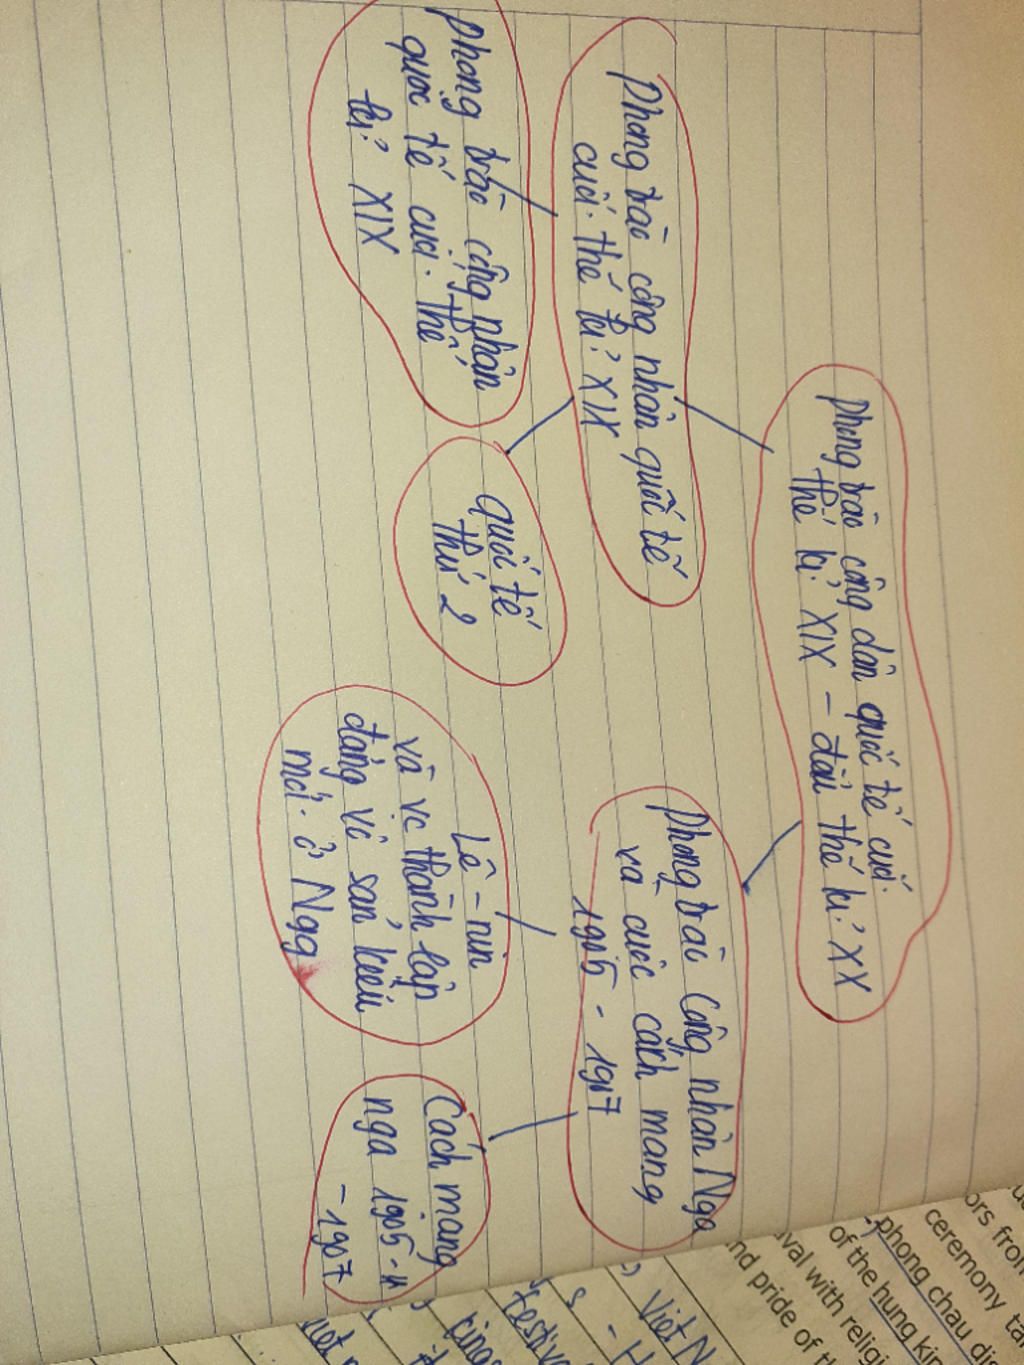 Phong trào công dân quốc tế cuối
thế kỉ XIX - đầu thế kỉ XX
Phong trào công nhân quốc tế
cuối thế kỉ XIX
Phong trào công nhân Nga
và cuộc cách mang
1905 - 1907
Phong trào công nhân
quốc tế cuối thế
kỉ XIX
Quốc tế
thứ 2
Lê-nin
và vc thành lập
đảng vô sản kiểu
mới ở Nga
Cách mạng
nga 1905
-1907
ors from
ceremony
phong chau di
of the hung kin
val with religi
nd pride of
Việt N